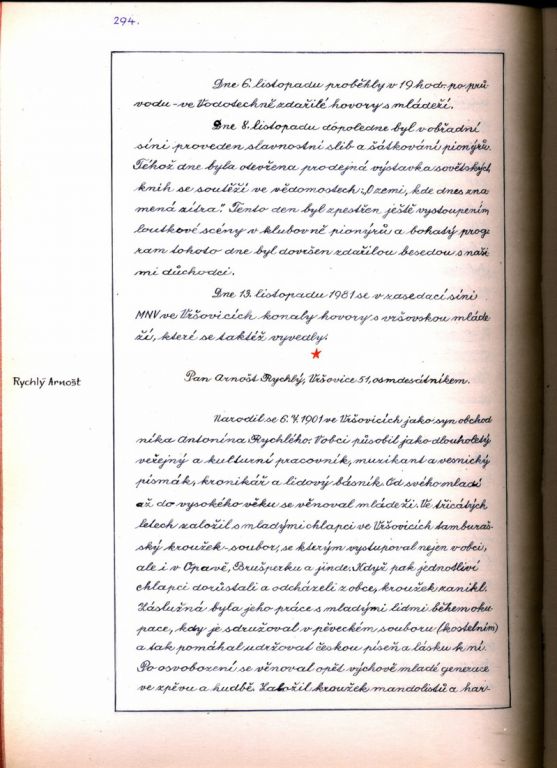 294.
Dne 6. listopadu proběhly v 19 hod. po prů
vodu - ve Vodotechně zdařilé hovory s mládeží.
Dne 8. listopadu dopoledne byl v obřadní
síni proveden slavnostní slib a šátkování pionýrů.
Téhož dne byla otevřena prodejná výstavka sovětských
knih se soutěží ve vědomostech: „O zemi, kde dnes zna
mená zítra." Tento den byl zpestřen ještě vystoupením
loutkové scény v klubovně pionýrů a bohatý prog
ram tohoto dne byl dovršen zdařilou besedou s naši
mi důchodci.
Dne 13. listopadu 1981 se v zasedací síni
MNV ve Vršovicích konaly hovory s vršovskou mláde
ží, které se taktéž vyvedly.
Rychlý Arnošt
Pan Arnošt Rychlý, Vršovice 51, osmdesátníkem.
Narodil se 6. V. 1901 ve Vršovicích jako syn obchod
níka Antonína Rychlého. V obci působil jako dlouholetý
veřejný a kulturní pracovník, muzikant a vesnický
písmák, kronikář a lidový básník. Od svého mládí
až do vysokého věku se věnoval mládeži. Ve třicátých
letech založil s mladými chlapci ve Vršovicích tamburaš
ský kroužek - soubor, se kterým vystupoval nejen v obci,
ale i v Opavě, Brušperku a jinde. Když pak jednotliví
chlapci dorůstali a odcházeli z obce, kroužek zanikl.
Záslužná byla jeho práce s mladými lidmi během oku
pace, kdy je sdružoval v pěveckém souboru (kostelním)
a tak pomáhal udržovat českou píseň a lásku k ní.
Po osvobození se věnoval opět výchově mladé generace
ve zpěvu a hudbě. Založil kroužek mandolistů a har-